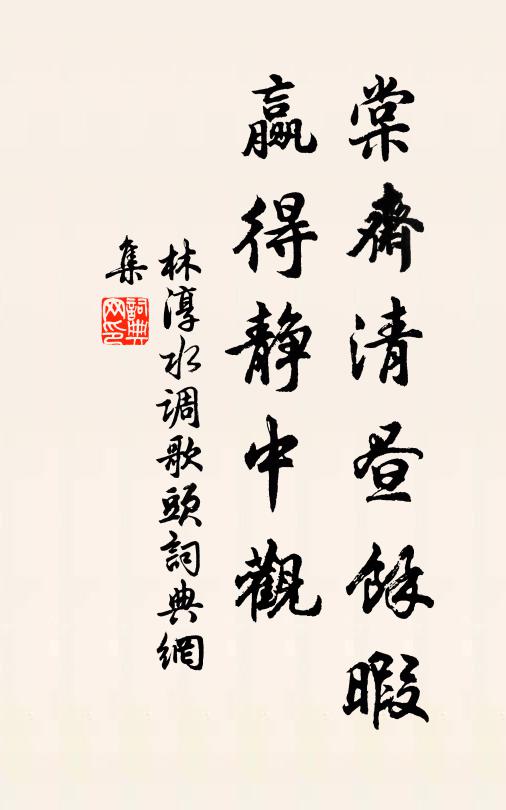 棠齋清昼餘暇
贏得靜中觀
林淳水调歌頭詞典網
集
詞典网印